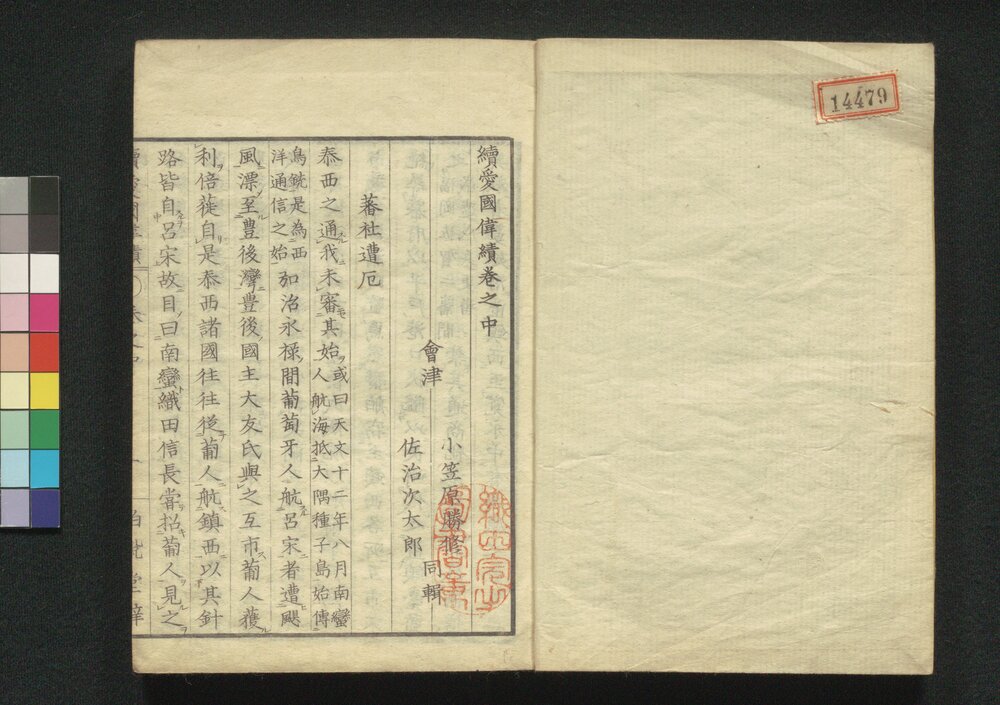 14479
續愛國偉績卷之中
會津
小笠原勝修
佐治次太郎
同輯
蕃社遭厄
泰西之通我未審其始或曰天文十二年八月南蠻
人航海抵大隅種子島始傳
鳥銃是為西
洋通信之始
弘治永祿間葡萄牙人航呂宋者遭颶
風漂至豊後灣豊後國主大友氏與之互市葡人獲
利倍蓰自是泰西諸國往往從葡人航鎮西以其針
路皆自呂宋故目曰南蠻織田信長嘗招葡人見之